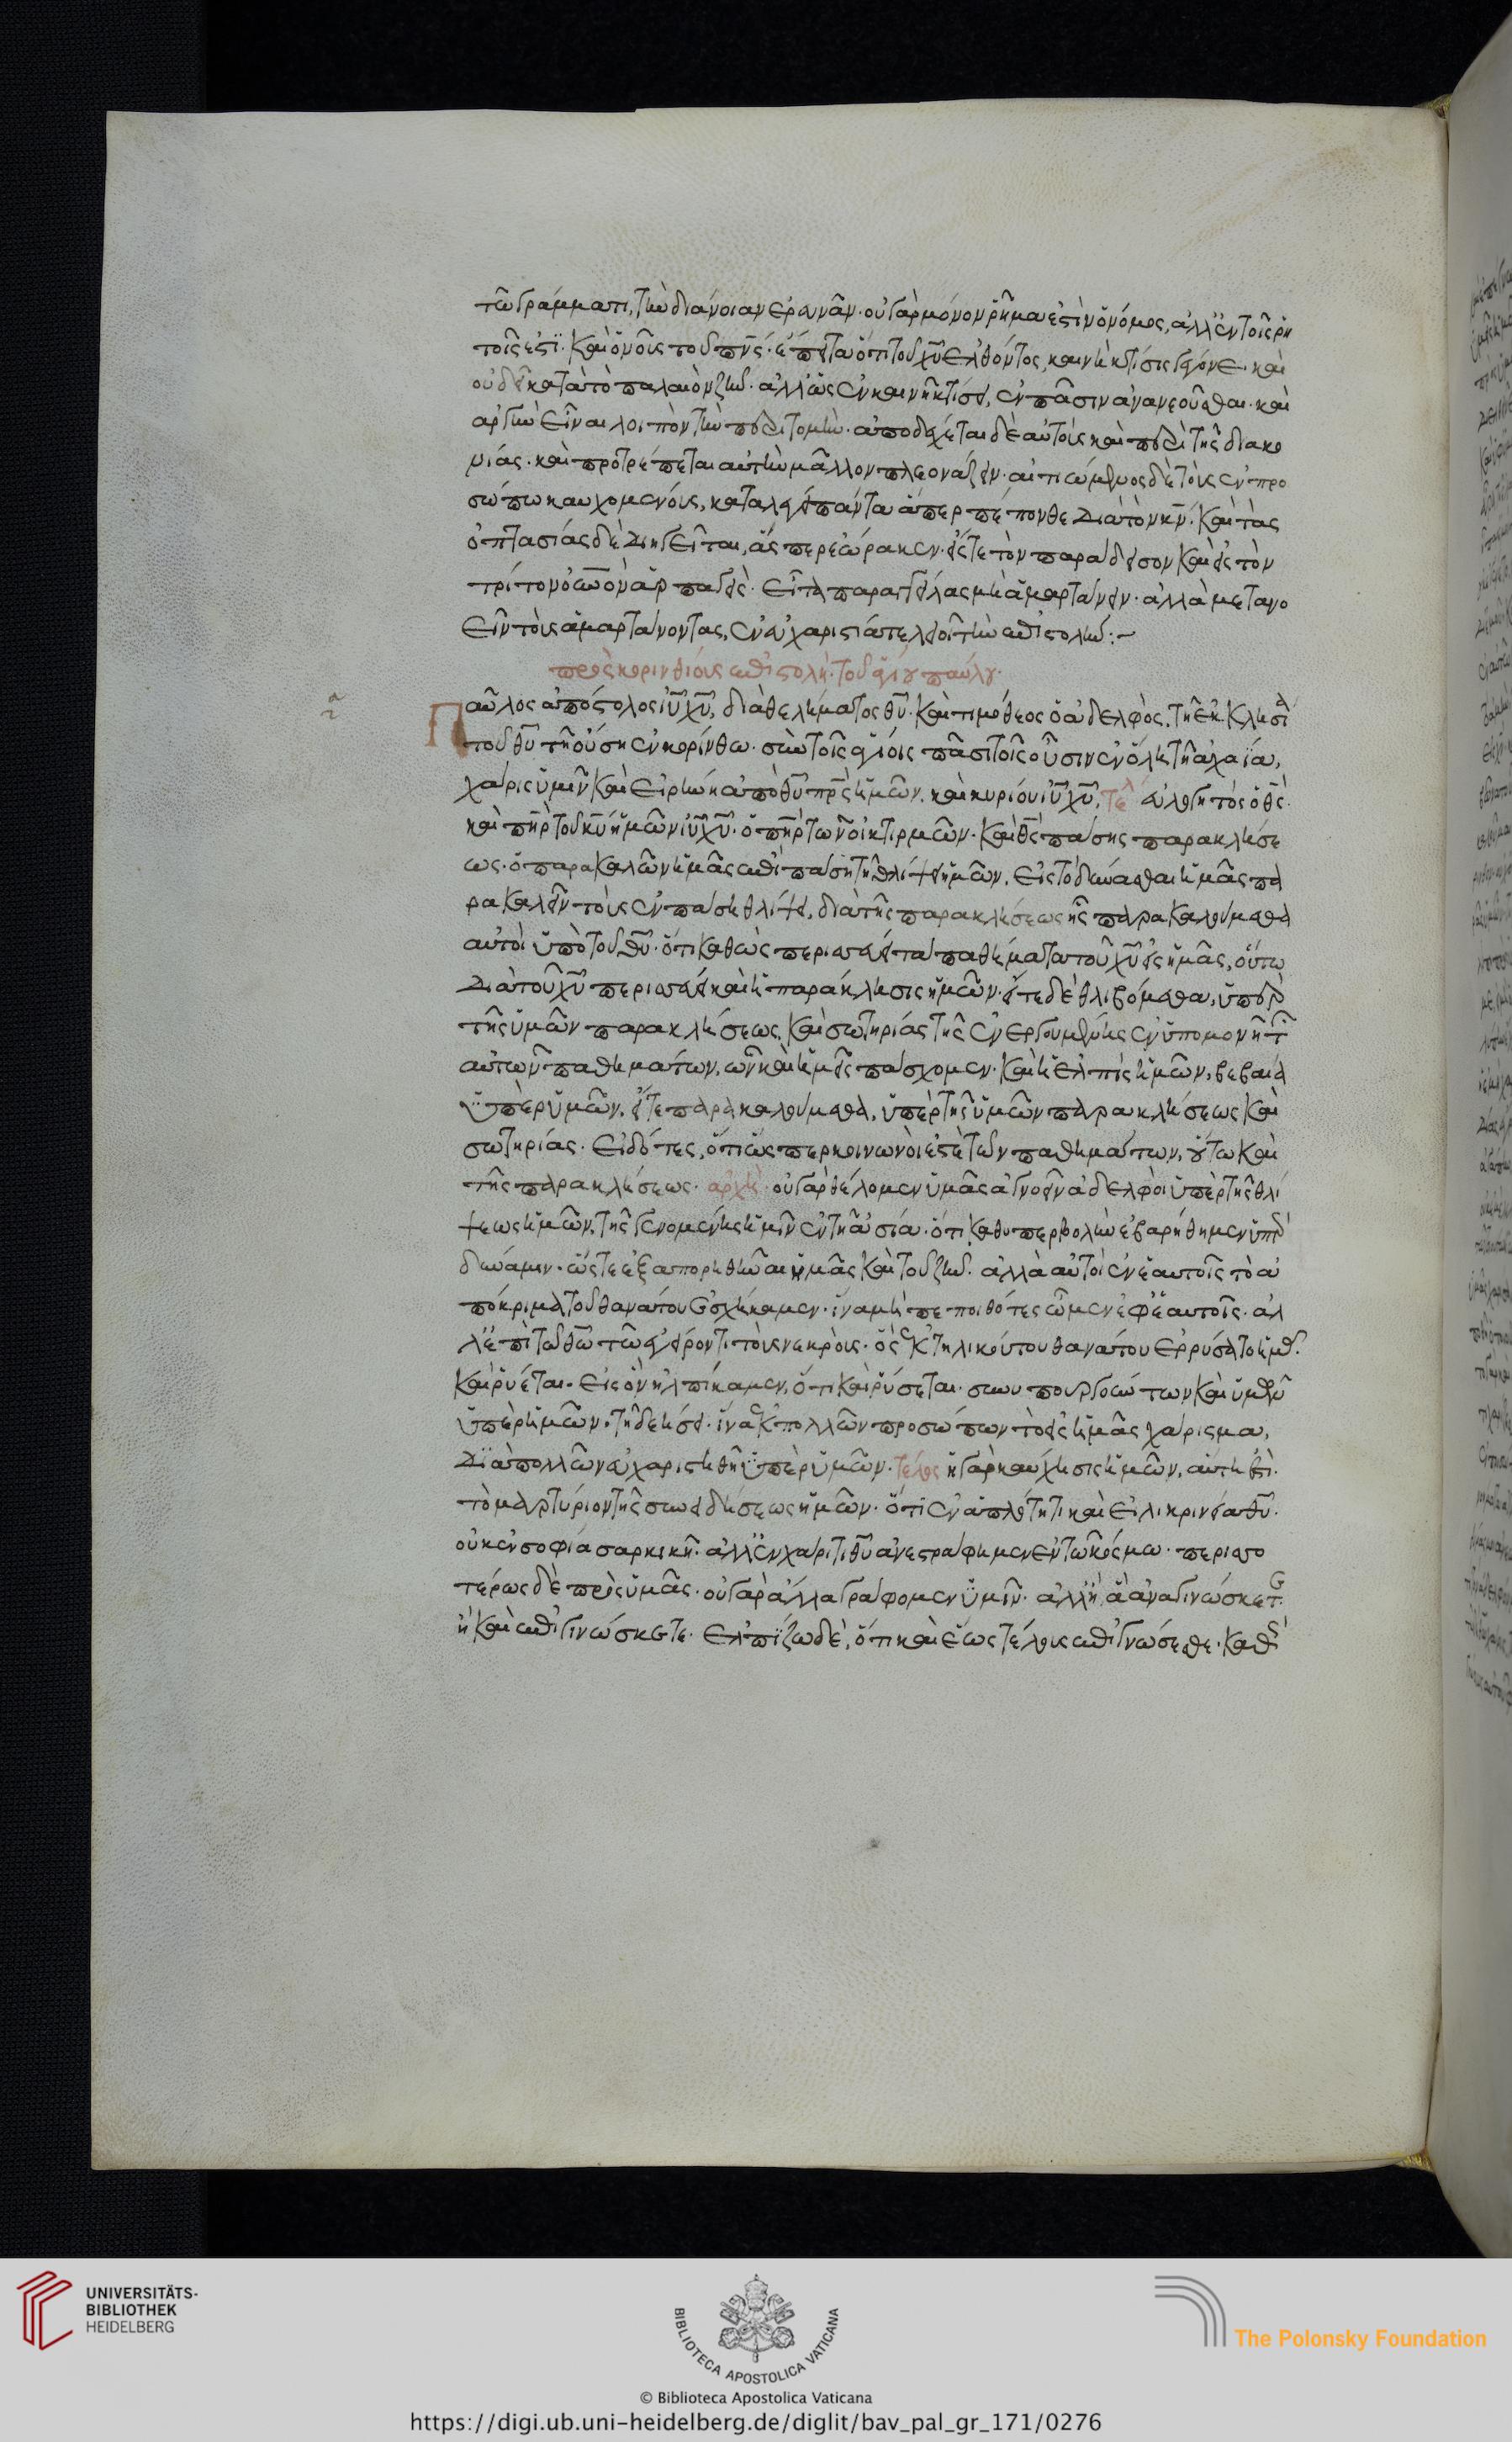 τῶ γράμματι, τὴν διάνοιαν ἐρευνᾶν· οὐ γὰρ μόνον ῥῆμα ἐστὶν ὁ νόμος, ἀλλ' ἐν τοῖς ῥη
τοῖς ἐστὶ· καὶ ὁ νοῦς τοῦ πν̅ς· ἔπειτα ὅτι τοῦ χυ̅ ἐλθόντος, καινὴ κτίσις γέγονε· καὶ
οὐ δεῖ κατὰ τὸ παλαιὸν ζῆν· ἀλλ' ὡς ἐν καινῆ κτίσει, ἐν πᾶσιν ἀνανεοῦσθαι· καὶ
ἀργὴν εἶναι λοιπὸν τὴν περιτομήν· ἀποδέχεται δὲ αὐτοὺς καὶ περὶ τῆς διακο
νίας· καὶ προτρέπεται αὐτὴν μᾶλλον πλεονάζειν· αἰτιώμενος δὲ τοὺς ἐν προ
σώπω καυχομενους, καταλέγει πάντα ἅπερ πέπονθε διὰ τὸν κν̅· καὶ τὰς
ὀπτασίας δὲ διηγεῖται, ἅς περ ἑώρακεν· εἴς τε τὸν παράδεισον καὶ εἰς τὸν
τρίτον οὐνον ἁρπαγεὶς· εἶτα παραγγείλας μὴ ἁμαρτάνειν· ἀλλὰ μετανο
εῖν τοὺς ἁμαρτάνοντας, ἐν εὐχαριστία τελειοῖ τὴν ἐπιστολήν:~
πρὸς κορινθίους ἐπιστολὴ· τοῦ ἁγίου παύλου·
α
Παῦλος ἀπόστολος ιυ̅ χυ̅, διὰ θελήματος θυ̅· καὶ τιμόθεος ὁ ἀδελφὸς, τῆ ἐκκλησία
τοῦ θυ̅ τῆ οὔση ἐν κορίνθω· σὺν τοῖς ἁγίοις πᾶσι τοῖς οὖσιν ἐν ὅλη τῆ ἀχαΐα,
χάρις ὑμῖν καὶ εἰρήνη ἀπὸ θυ̅ πρ̅ς ἡμῶν, καὶ κυρίου ιυ̅ χυ̅, τελ εὐλογητὸς ὁ θς̅·
καὶ πηρ̅ τοῦ κυ̅ ἡμῶν ιυ̅ χυ̅· ὁ πηρ̅ τῶν οἰκτιρμῶν· καὶ θς̅ πάσης παρακλήσε
ως· ὁ παρακαλῶν ἡμᾶς ἐπὶ πάση τῆ θλίψει ἡμῶν, εἰς τὸ δύνασθαι ἡμᾶς πα
ρακαλεῖν τοὺς ἐν πάση θλίψει, διὰ τῆς παρακλήσεως ἧς παρακαλούμεθα
αὐτοὶ ὑπὸ τοῦ θυ̅· ὅτι καθὼς περισσεύει τὰ παθήματα τοῦ χυ̅ εἰς ἡμᾶς, οὕτω
διὰ τοῦ χυ̅ περισσεύει καὶ ἡ παράκλησις ἡμῶν· εἴτε δὲ θλιβόμεθα, ὑπὲρ
τῆς ὑμῶν παρακλήσεως, καὶ σωτηρίας τῆς ἐνεργουμένης ἐν ὑπομονῆ τῶν
αὐτῶν παθημάτων, ὧν καὶ ἡμεῖς πάσχομεν· καὶ ἡ ἐλπὶς ἡμῶν, βεβαία
ὑπὲρ ὑμῶν· εἴτε παρακαλούμεθα, ὑπὲρ τῆς ὑμῶν παρακλήσεως καὶ
σωτηρίας· εἰδότες, ὅτι ὥς περ κοινωνοὶ ἐστὲ τῶν παθημάτων, οὕτω καὶ
τῆς παρακλήσεως· αρχὴ· οὐ γὰρ θέλομεν ὑμᾶς ἀγνοεῖν ἀδελφοὶ ὑπὲρ τῆς θλί
ψεως ἡμῶν, τῆς γενομένης ἡμῖν ἐν τῆ ἀσία· ὅτι καθ' ὑπερβολὴν ἐβαρήθημεν ὑπὲρ
δύναμιν· ὥστε ἐξαπορηθῆναι ἡμᾶς καὶ τοῦ ζῆν· ἀλλὰ αὐτοὶ ἐν ἑαυτοῖς τὸ ἀ
πόκριμα τοῦ θανάτου ἐσχήκαμεν· ἵνα μὴ πεποιθότες ὦμεν ἐφ' ἑαυτοῖς· ἀλ
λ' ἐπὶ τῶ θω̅ τῶ ἐγείροντι τοὺς νεκρούς· ὃς ἐκ τηλικούτου θανάτου ἐρρύσατο ἡμᾶς·
καὶ ῥύεται· εἰς ὃν ἠλπίκαμεν, ὅτι καὶ ῥύσεται· συνυπουργούντων καὶ ὑμῶν
ὑπὲρ ἡμῶν· τῆ δεήσει· ἵνα ἐκ πολλῶν προσώπων τὸ εἰς ἡμᾶς χάρισμα,
διὰ πολλῶν εὐχαριστηθῆ ὑπὲρ ὑμῶν· τέλος ἡ γὰρ καύχησις ἡμῶν, αὕτη ἐστὶ·
τὸ μαρτύριον τῆς συνειδήσεως ἡμῶν· ὅτι ἐν ἁπλότητι καὶ εἰλικρινεία θυ̅·
οὐκ ἐν σοφία σαρκικῆ· ἀλλ' ἐν χάριτι θυ̅ ἀνεστράφημεν ἐν τῶ κόσμω· περισσο
τέρως δὲ πρὸς ὑμᾶς· οὐ γὰρ ἄλλα γράφομεν ὑμῖν· ἀλλ' ἢ ἃ ἀναγινώσκετε
ἢ καὶ ἐπιγινώσκετε· ἐλπίζω δὲ, ὅτι καὶ ἕως τέλους ἐπιγνώσεσθε· καθὼς
UNIVERSITÄTS-
BIBLIOTHEK
HEIDELBERG
BIBLIOTECA APOSTOLICA VATICANA
The Polonsky Foundation
© Biblioteca Apostolica Vaticana
https://digi.ub.uni-heidelberg.de/diglit/bav_pal_gr_171/0276